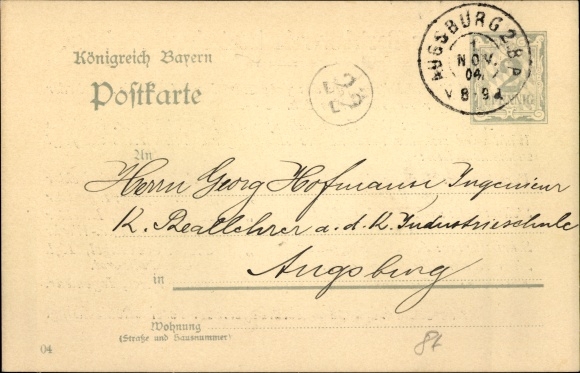 Königreich Bayern
Postkarte
AUGSBURG 2.B.P.
1
NOV.
04.
V 8-9
PFENNIG
An
Herrn Georg Hofmann, Ingenieur
K. Reallehrer a. d. K. Industrieschule
in Augsburg
Wohnung
(Straße und Hausnummer)
04